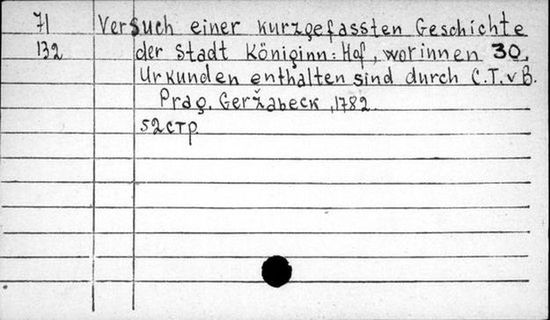 71 Versuch einer kurzgefassten Geschichte
132 der Stadt Königinn: Hof, worinnen 30.
Urkunden enthalten sind durch C.T.v B.
Prag. Geržabeck, 1782
52 стр